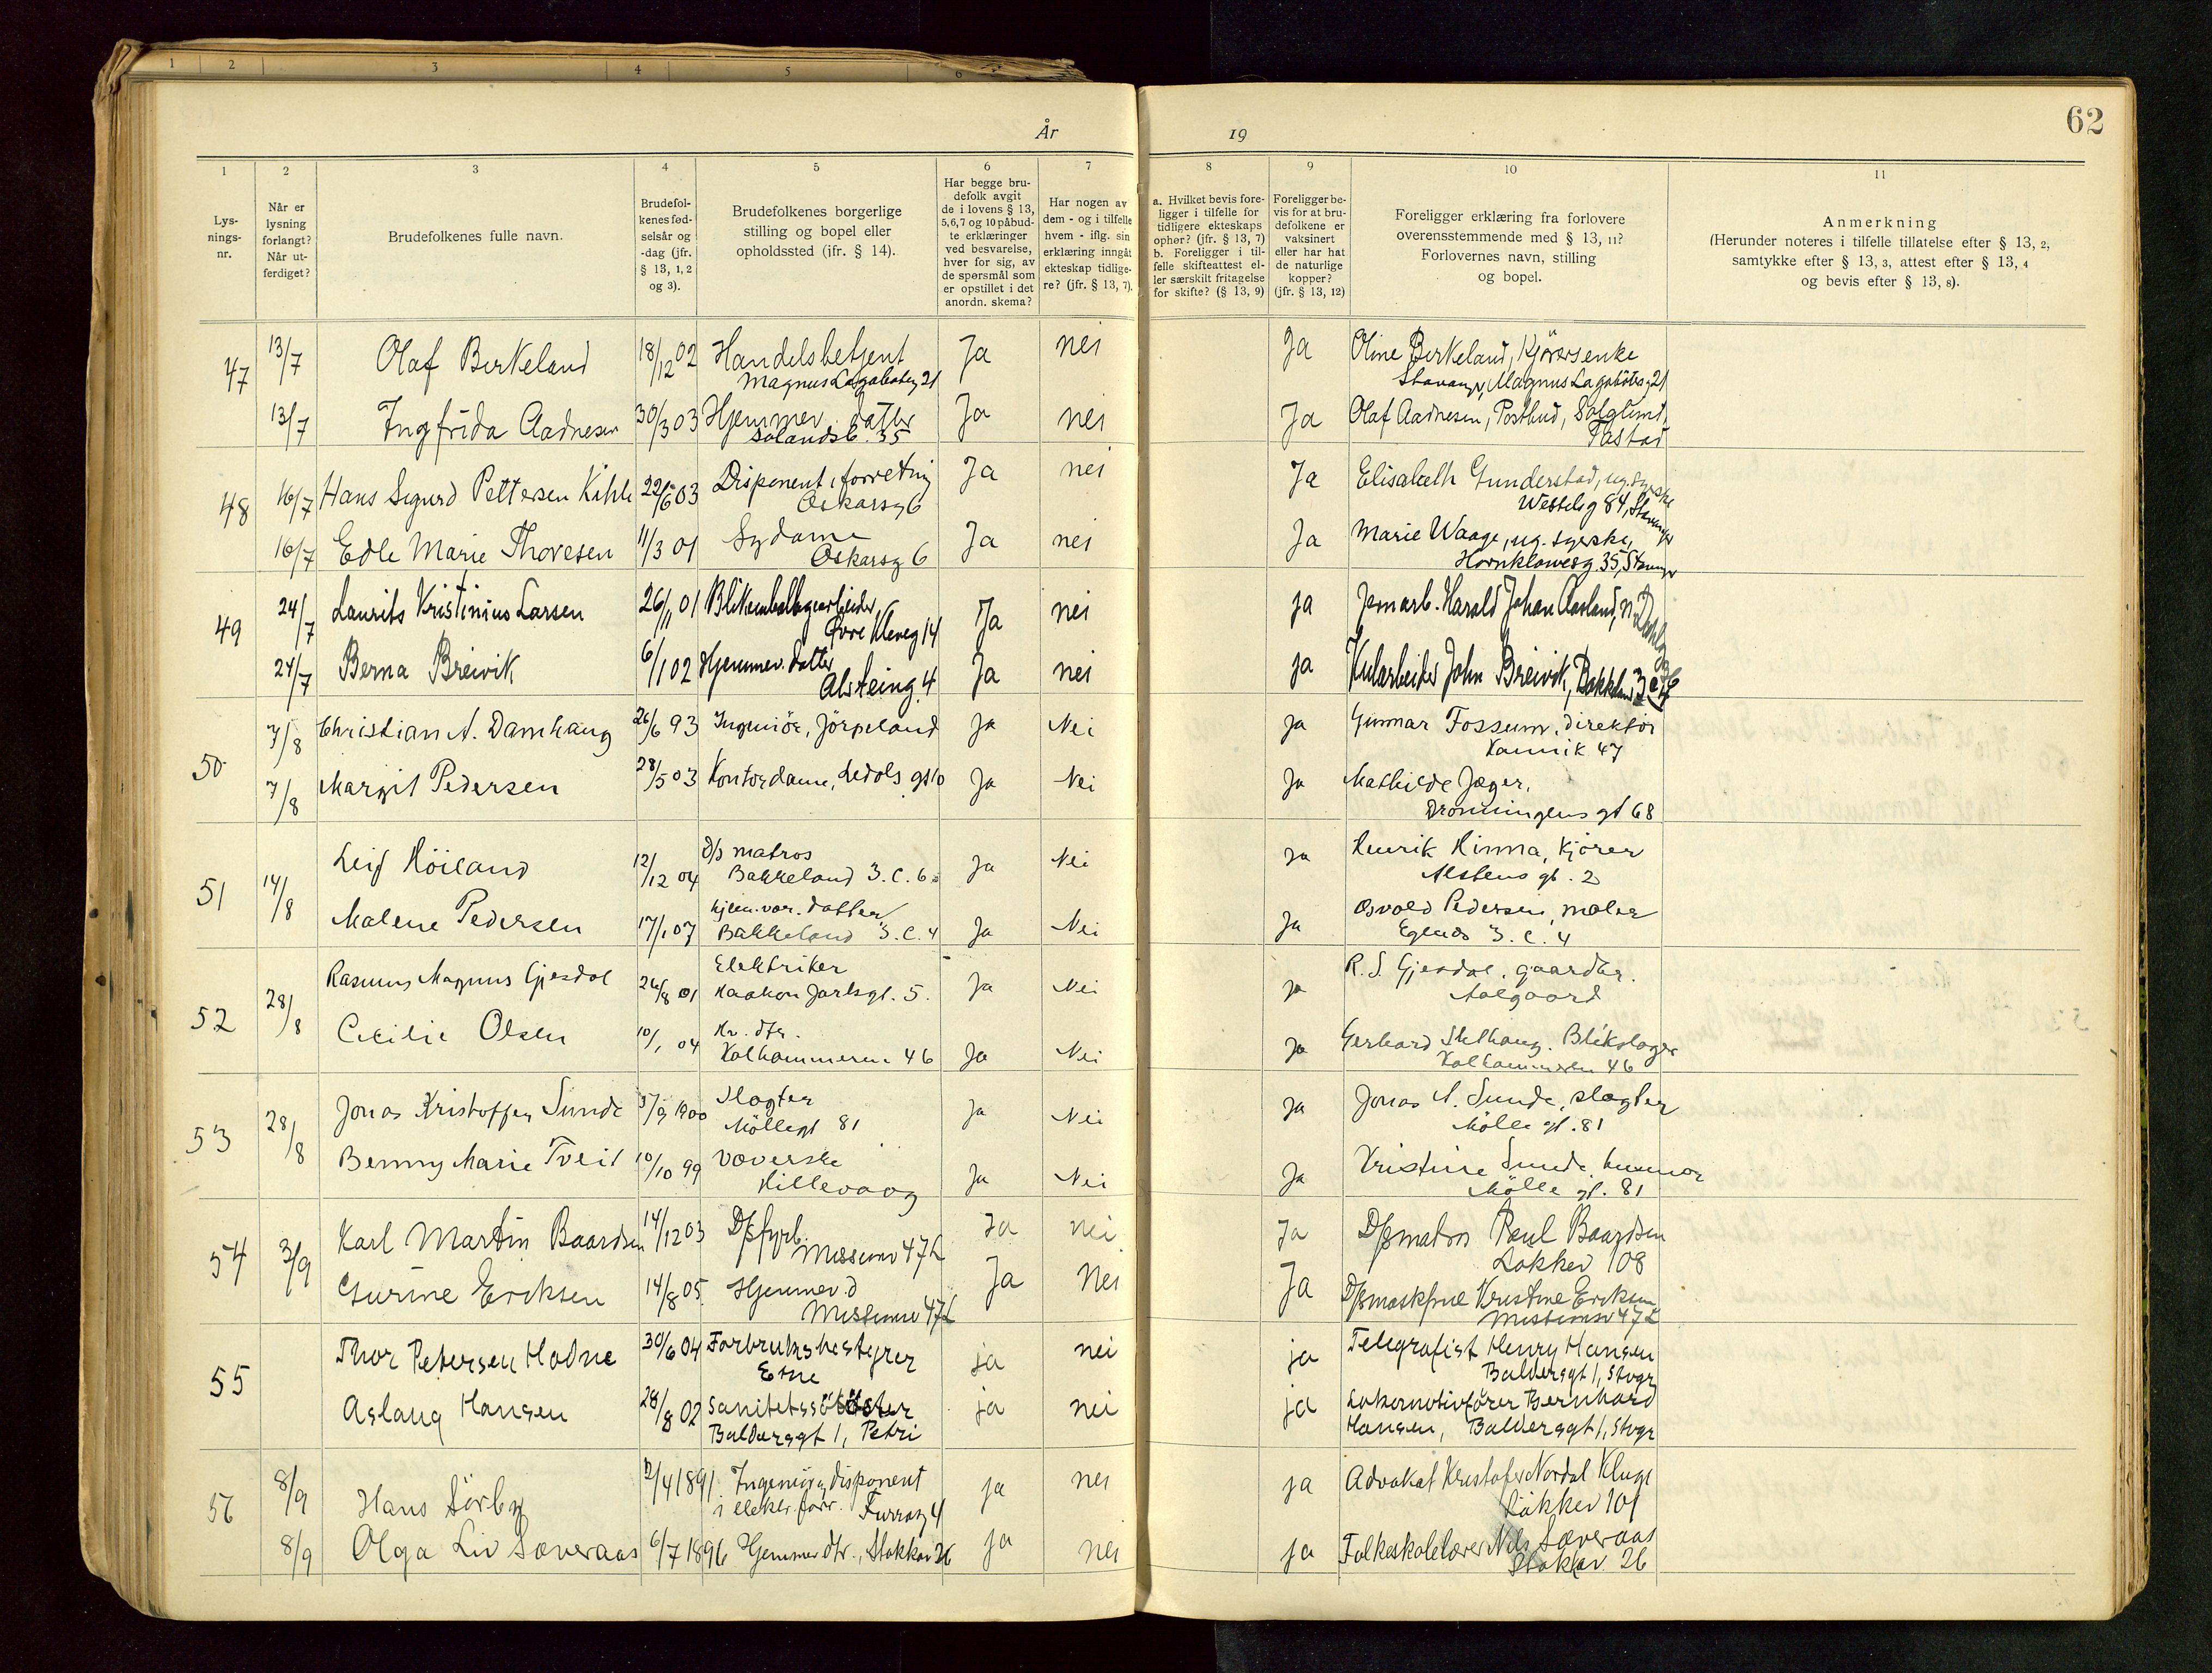 1 2 3 4 5 6
62
År 19
1 2 3 4 5 6 7 8 9 10 11
Lysningsnr.
Når er lysning forlangt? Når utferdiget?
Brudefolkenes fulle navn.
Brudefolkenes fødselsår og -dag (jfr. § 13, 1, 2 og 3).
Brudefolkenes borgerlige stilling og bopel eller opholdssted (jfr. § 14).
Har begge brudefolk avgit de i lovens § 13, 5, 6, 7 og 10 påbudte erklæringer ved besvarelse, hver for sig, av de spørsmål som er opstillet i det anordn. skema?
Har nogen av dem - og i tilfelle hvem - iflg. sin erklæring inngåt ekteskap tidligere? (jfr. § 13, 7).
a. Hvilket bevis foreligger i tilfelle for tidligere ekteskaps ophør? (jfr. § 13, 7) b. Foreligger i tilfelle skifteattest eller særskilt fritagelse for skifte? (§ 13, 9)
Foreligger bevis for at brudefolkene er vaksinert eller har hat de naturlige kopper? (jfr. § 13, 12)
Foreligger erklæring fra forlovere overensstemmende med § 13, 11? Forlovernes navn, stilling og bopel.
Anmerkning (Herunder noteres i tilfelle tillatelse efter § 13, 2, samtykke efter § 13, 3, attest efter § 13, 4 og bevis efter § 13, 8).
47 13/7 Olaf Berkeland 18/12 02 Handelsbetjent Ja nei Ja Oline Berkeland, Kjörersenke
Magnus Lagabötesg 21 Stavanger, Magnus Lagabötesg 21
13/7 Ingfrida Aadnesen 30/3 03 Hjemmev. datter Ja nei Ja Olaf Aadnesen, Postbud, Solglimt,
35 Tastad
48 16/7 Hans Sigurd Pettersen Kihle 22/6 03 Disponent i forretning Ja nei Ja Elisabeth Gunderstad, ug. syerske
Oskarsg 6 84, Stavanger
16/7 Edle Marie Thoresen 11/3 01 Sydame Ja nei Ja Marie Waage, ug. syerske,
Oskarsg 6 Hornklovesg. 35, Stavanger
49 24/7 Laurits Kristinius Larsen 26/1 01 Blikemballagearbeider, Ja nei ja Harald Johan Aasland,
Øvre Kleveg 14
24/7 Berna Breivik 6/1 02 Hjemmev. datter Ja nei ja John Breivik,
Alsteing. 4
50 7/8 Christian A. Damhaug 26/6 93 Ingeniör, Jörpeland Ja Nei Ja Gunnar Fossum, direktör
Kannik 47
7/8 Margit Pedersen 28/5 03 Kontordame, Ledols gt 10 Ja Nei Ja Mathilde Jæger,
Dronningens gt 68
51 14/8 Leif Höiland 12/12 04 D/s matros Ja Nei Ja Henrik Hinna, Kjörer
Bakkeland 3. C. 6 Alstens gt. 2
Malene Pedersen 17/1 07 hjem.vær. datter Ja Nei Ja Osvald Pedersen, maler
Bakkeland 3. C. 4 Egenes 3. C. 4
52 28/8 Rasmus Magnus Gjesdal 26/8 01 Elektriker Ja Nei Ja R. S. Gjesdal, gaardbr.
Haakon Jarlsgt. 5. Aalgaard
Cecilie Olsen 10/1 04 Hv. dtr. Ja Nei Ja Gerhard Blikslager
Kalhammeren 46 Kalhammeren 46
53 28/8 Jonas Kristoffer Sunde 1900 Slagter Ja Nei Ja Jonas A. Sunde, slagter
Möllegt 81 Mölle gt. 81
Benny Marie Tveit 10/10 99 Væverske Ja Nei Ja Kristine Sunde husmor
Hillevaag Mölle gt. 81
54 3/9 Karl Martin Baardsen 14/12 03 D/sfyrb. Ja nei Ja D/smatros Paul Baardsen
Misjonsv 47 L Lökkev 108
Gurine Eriksen 14/8 05 Hjemmev. d Ja Nei Ja Kristine Eriksen
Misjonsv 47 L Misjonsv 47 L
55 Thor Petersen Hodne 30/6 04 Forbruksbestyrer ja nei ja Telegrafist Henry Hansen
Etne Baldersgt 1, Stvgr
Aslaug Hansen 28/8 02 Sanitetssöster ja nei ja Lokomotivförer Bernhard
Baldersgt 1, Petri Hansen, Baldersgt 1, Stvgr
56 8/9 Hans Sörby 2/4 1891 Ingeniör, disponent ja nei ja Advokat Kristofer Nordal Kluge
i elektr. forr. Furrasg 4 Lökkev 101
8/9 Olga Liv Sæveraas 6/7 1896 Hjemmev dtr., Stokkav 26 ja nei ja Folkeskolelærer Nils Sæveraas
Stokkav. 26